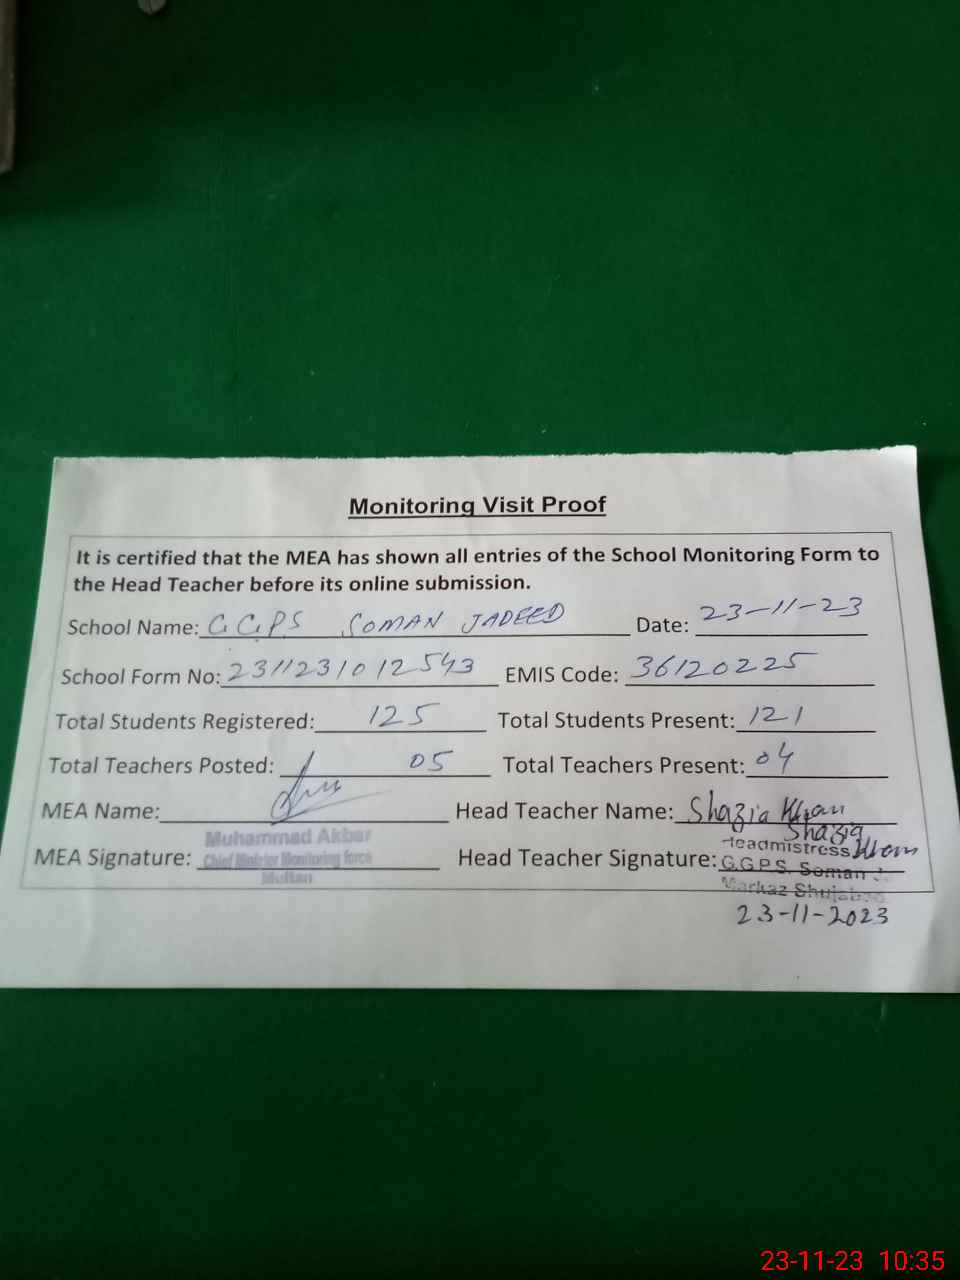 Monitoring Visit Proof
It is certified that the MEA has shown all entries of the School Monitoring Form to
the Head Teacher before its online submission.
School Name: GGPS SOMAN JADEED Date: 23-11-23
School Form No: 2311231012543 EMIS Code: 36120225
Total Students Registered: 125 Total Students Present: 121
Total Teachers Posted: 05 Total Teachers Present: 04
MEA Name: Head Teacher Name: Shazia Khan
Muhammad Akbar
Chief Minister Monitoring force
Multan
MEA Signature: Head Teacher Signature: Shazia Khan
Headmistress
G.G.P.S. Soman J.
Markaz Shujabad
23-11-2023
23-11-23 10:35